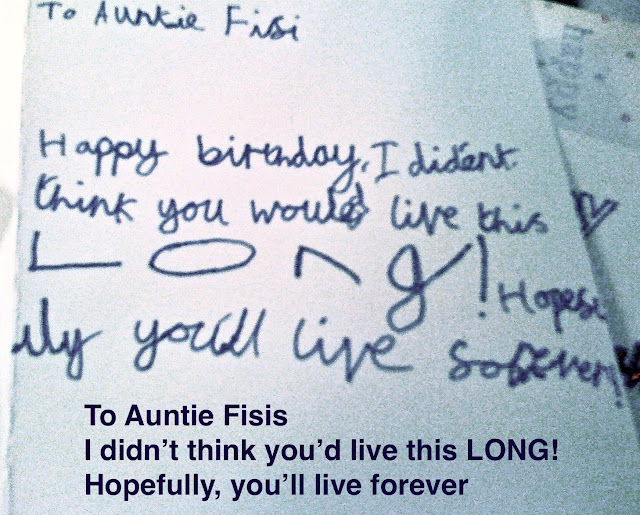 To Auntie Fisi
happy
Happy birthday, I dident
think you would live this
LONg!
lly you'll live
To Auntie Fisis
I didn’t think you’d live this LONG!
Hopefully, you’ll live forever